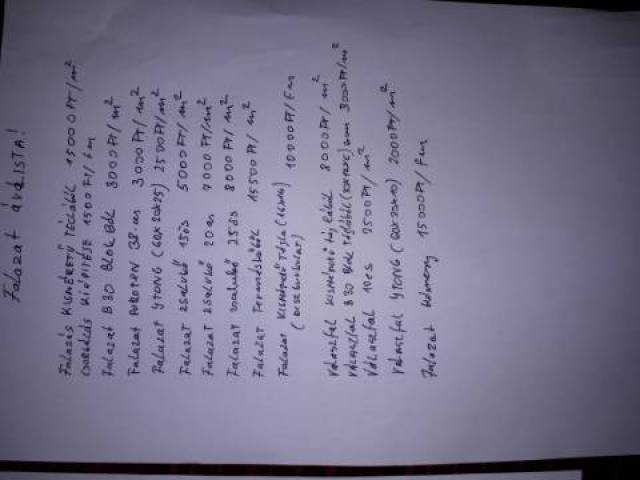 Falazat árlista!
Falazás kisméretű téglából 15000 Ft/m²
csorbázás kiépitése 1500 Ft/fm
Falazat B30 Blok Ból 3000 Ft/m²
Falazat POROTON 38-an 3000 Ft/m²
Falazat YTONG (60x20x25) 2500 Ft/m²
Falazat zsalukő 15ös 5000 Ft/m²
Falazat zsalukő 20an 7000 Ft/m²
Falazat zsalukő 25ös 8000 Ft/m²
Falazat Termésköböl 15500 Ft/m²
Falazat Kisméretű Tégla 10000 Ft/fm
Válaszfal Kisméretű téglából 8000 Ft/m²
Válaszfal B30 Blok Téglából 3000 Ft/m²
Válaszfal 10es 2500 Ft/m²
Válaszfal YTONG (60x20x10) 2000 Ft/m²
Falazat Kémény 15000 Ft/fm